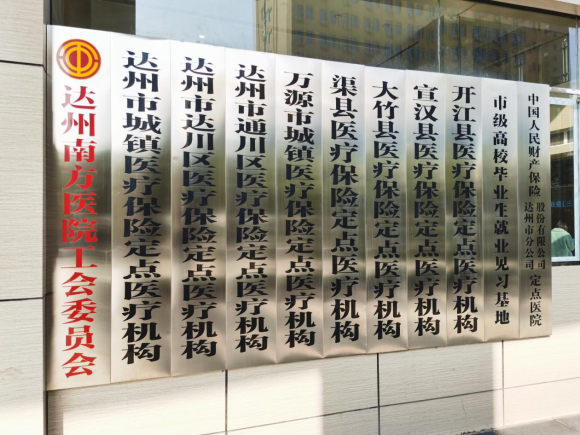 达州南方医院工会委员会
达州市城镇医疗保险定点医疗机构
达州市达川区医疗保险定点医疗机构
达州市通川区医疗保险定点医疗机构
万源市城镇医疗保险定点医疗机构
渠县医疗保险定点医疗机构
大竹县医疗保险定点医疗机构
宣汉县医疗保险定点医疗机构
开江县医疗保险定点医疗机构
市级高校毕业生就业见习基地
中国人民财产保险股份有限公司达州市分公司定点医院